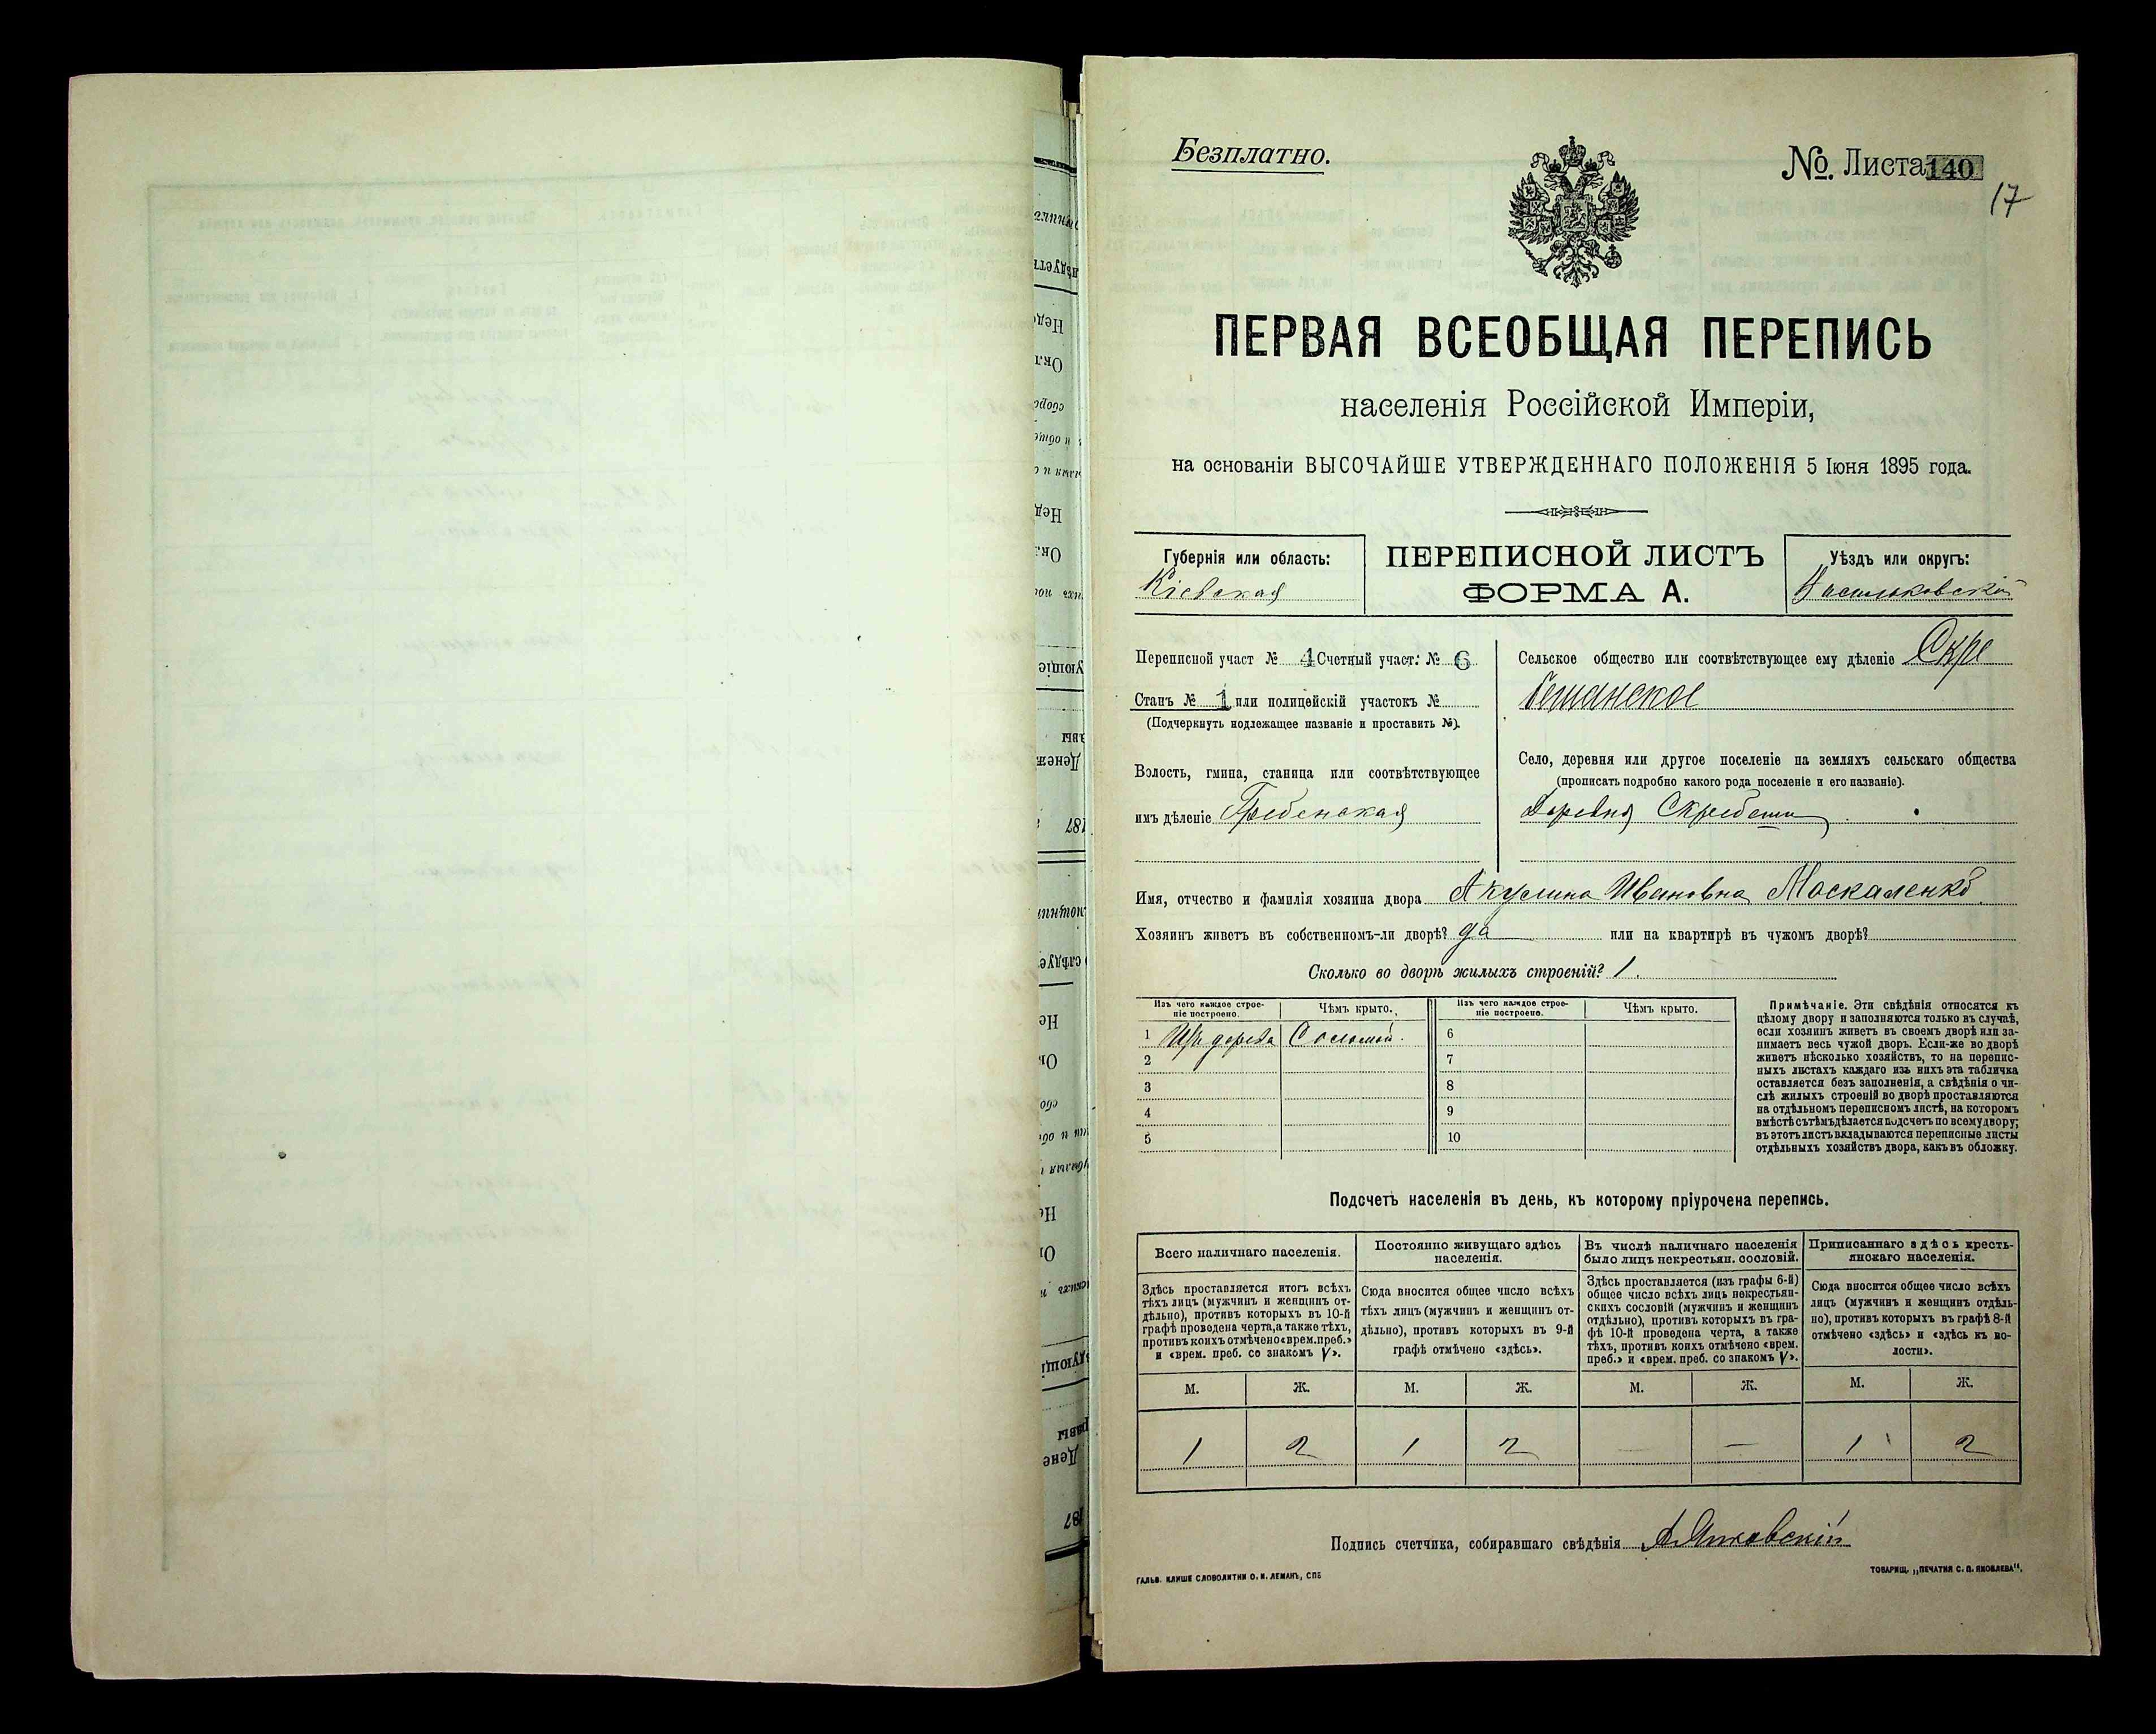 Безплатно.
№. Листа 140
17
ПЕРВАЯ ВСЕОБЩАЯ ПЕРЕПИСЬ
населенія Россійской Имперіи,
на основаніи ВЫСОЧАЙШЕ УТВЕРЖДЕННАГО ПОЛОЖЕНІЯ 5 Іюня 1895 года.
Губернія или область:
Кіевская
ПЕРЕПИСНОЙ ЛИСТЪ
ФОРМА А.
Уѣздъ или округъ:
Васильковскій
Переписной участ № 4 Счетный участ: № 6
Станъ № 1 или полицейскій участокъ №
(Подчеркнуть надлежащее названіе и проставить №).
Волость, гмина, станица или соотвѣтствующее
имъ дѣленіе Гребенская
Сельское общество или соотвѣтствующее ему дѣленіе Скре
бешанское
Село, деревня или другое поселеніе на земляхъ сельскаго общества
(прописать подробно какого рода поселеніе и его названіе).
Деревня Скребеши
Имя, отчество и фамилія хозяина двора Акулина Ивановна Москаленко
Хозяинъ живетъ въ собственномъ-ли дворѣ? да или на квартирѣ въ чужомъ дворѣ?
Сколько во дворѣ жилыхъ строеній? 1.
Изъ чего каждое строе-
ніе построено.
Чѣмъ крыто.
Изъ чего каждое строе-
ніе построено.
Чѣмъ крыто.
1 Изъ дерева Соломой. 6
2 7
3 8
4 9
5 10
Примѣчаніе. Эти свѣдѣнія относятся къ
цѣлому двору и заполняются только въ случаѣ,
если хозяинъ живетъ въ своемъ дворѣ или за-
нимаетъ весь чужой дворъ. Если-же во дворѣ
живетъ нѣсколько хозяйствъ, то на перепис-
ныхъ листахъ каждаго изъ нихъ эта табличка
оставляется безъ заполненія, а свѣдѣнія о чи-
слѣ жилыхъ строеній во дворѣ проставляются
на отдѣльномъ переписномъ листѣ, на которомъ
вмѣстѣ съ тѣмъ дѣлается подсчетъ по всему двору;
въ этотъ листъ вкладываются переписные листы
отдѣльныхъ хозяйствъ двора, какъ въ обложку.
Подсчетъ населенія въ день, къ которому пріурочена перепись.
Всего наличнаго населенія.
Здѣсь проставляется итогъ всѣхъ
тѣхъ лицъ (мужчинъ и женщинъ от-
дѣльно), противъ которыхъ въ 10-й
графѣ проведена черта, а также тѣхъ,
противъ коихъ отмѣчено «врем. преб.»
и «врем. преб. со знакомъ V».
Постоянно живущаго здѣсь
населенія.
Сюда вносится общее число всѣхъ
тѣхъ лицъ (мужчинъ и женщинъ от-
дѣльно), противъ которыхъ въ 9-й
графѣ отмѣчено «здѣсь».
Въ числѣ наличнаго населенія
было лицъ некрестьян. сословій.
Здѣсь проставляется (изъ графы 6-й)
общее число всѣхъ лицъ некрестьян-
скихъ сословій (мужчинъ и женщинъ
отдѣльно), противъ которыхъ въ гра-
фѣ 10-й проведена черта, а также
тѣхъ, противъ коихъ отмѣчено «врем.
преб.» и «врем. преб. со знакомъ V».
Приписаннаго здѣсь кресть-
янскаго населенія.
Сюда вносится общее число всѣхъ
лицъ (мужчинъ и женщинъ отдѣль-
но), противъ которыхъ въ графѣ 8-й
отмѣчено «здѣсь» и «здѣсь къ во-
лости».
М. Ж. М. Ж. М. Ж. М. Ж.
1 2 1 2 — — 1 2
Подпись счетчика, собиравшаго свѣдѣнія
ГАЛЬВ. КЛИШЕ СЛОВОЛИТНИ О. И. ЛЕМАНЪ, СПБ
ТОВАРИЩ. „ПЕЧАТНЯ С. П. ЯКОВЛЕВА".